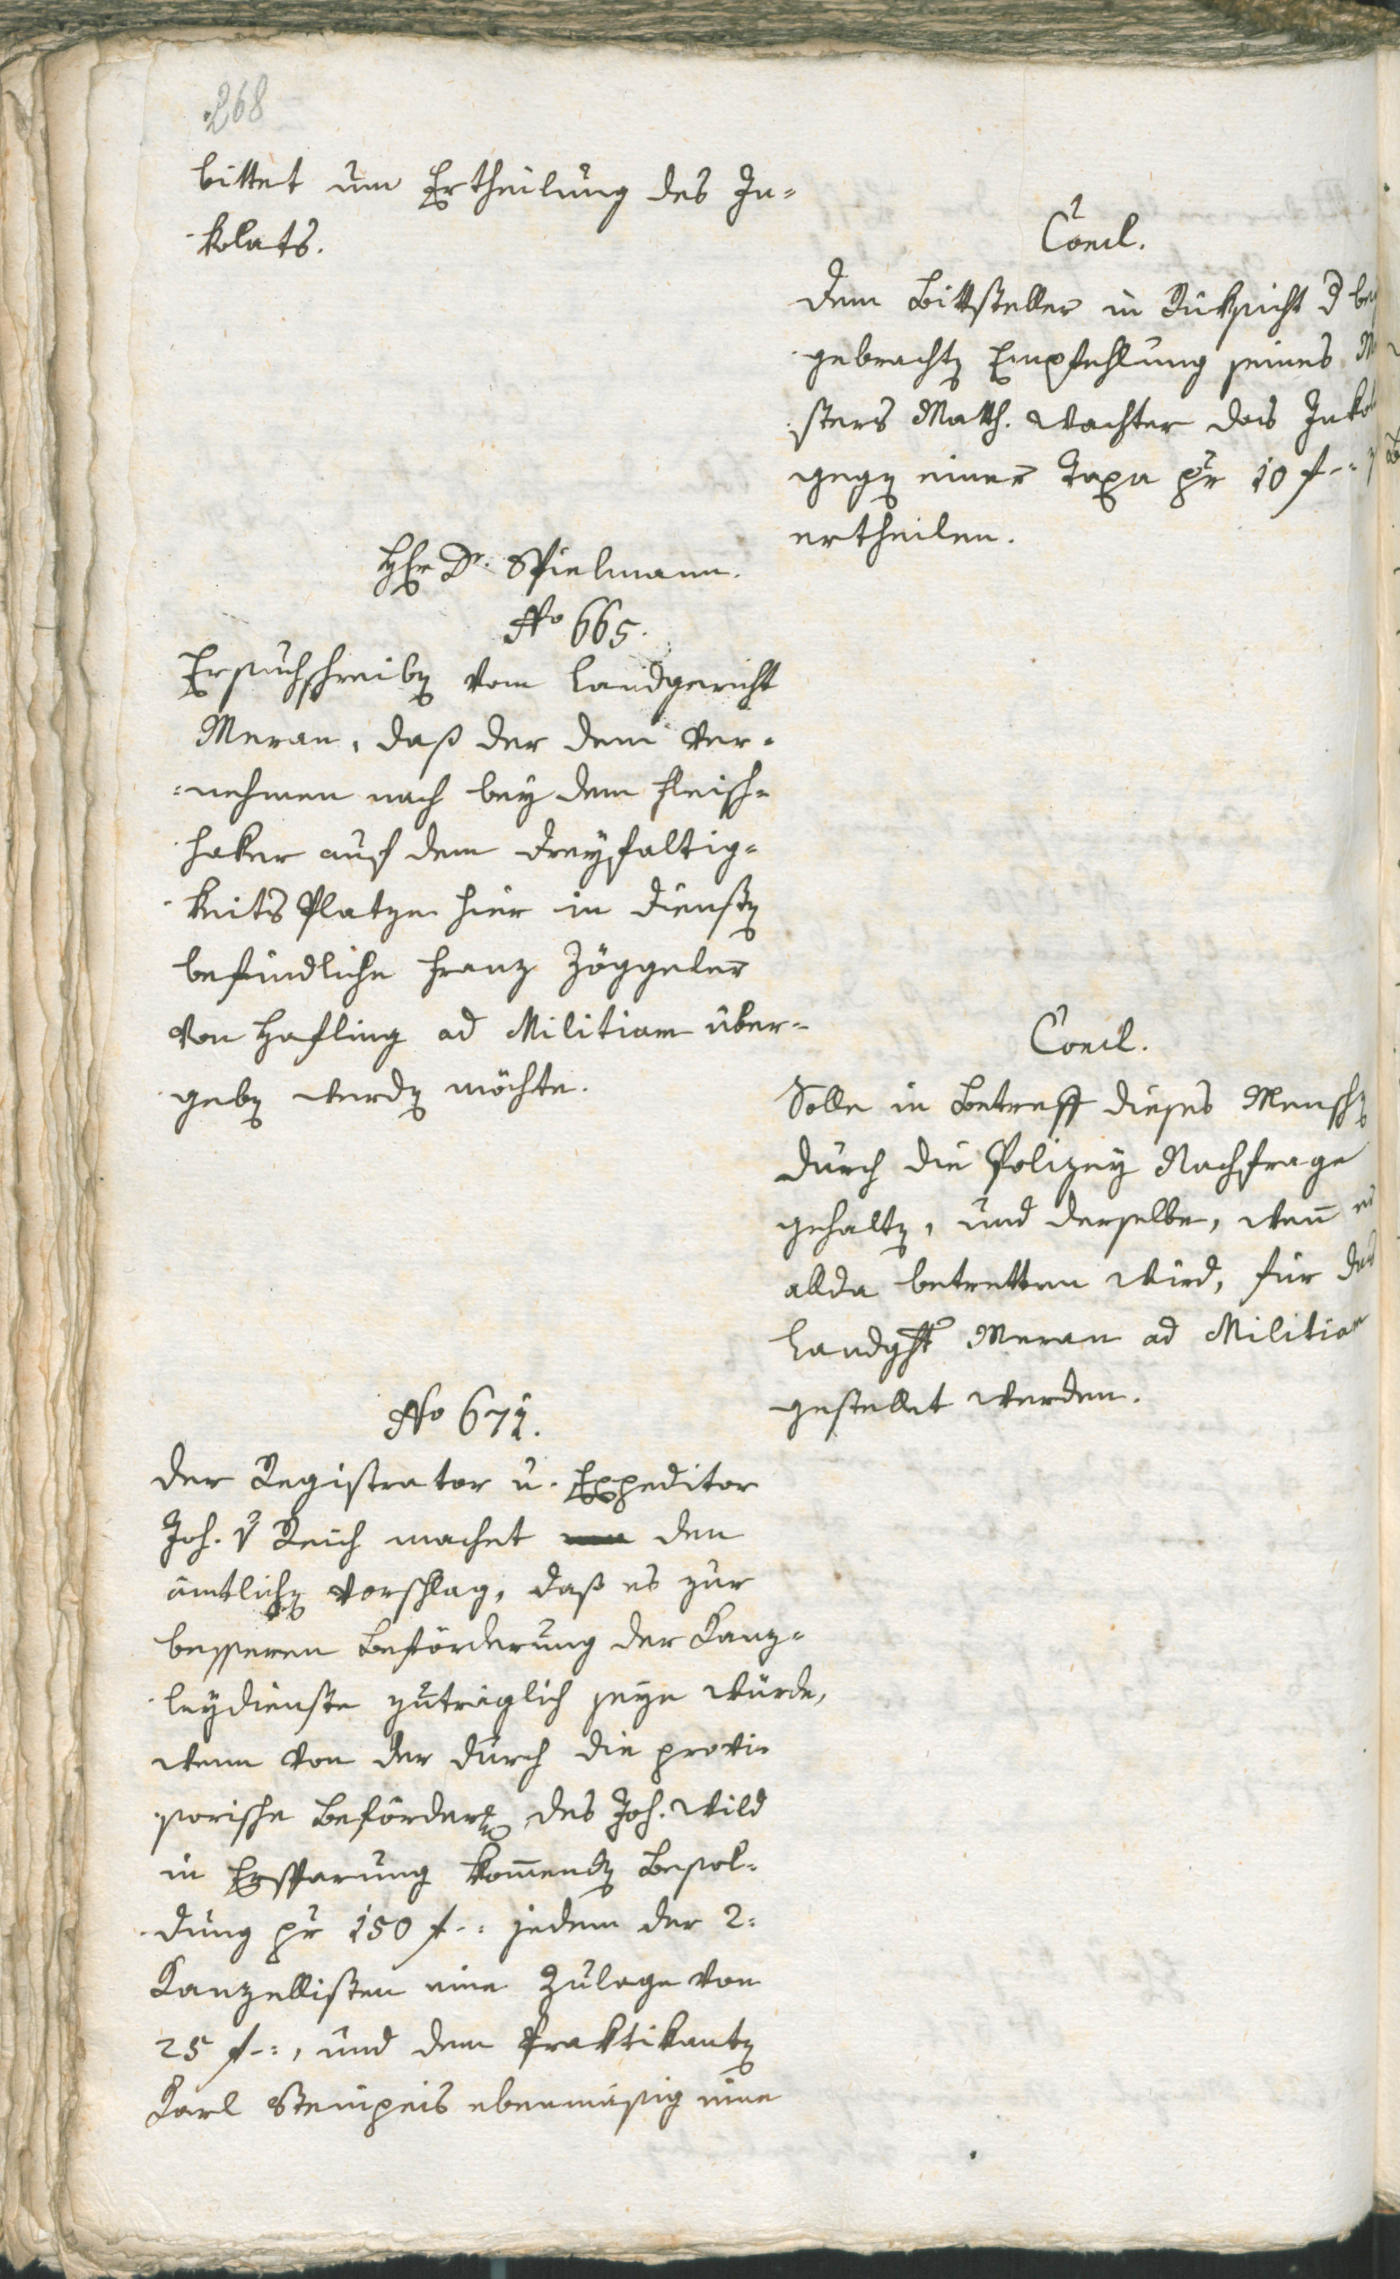 268
bittet um Ertheilung des In-
kolats.
Concl.
Dem Bittsteller in Rüksicht d
gebrachten Empfehlung seines
sters Math. Wachter das Inkol
gegen einer Taxa pr 10 f
ertheilen.
Hr Dr. Spielmann.
No 665.
Ersuchschreiben vom Landgericht
Meran, daß der dem Ver-
=nehmen nach bey dem Fleisch-
haker auf dem Dreyfaltig-
keits Platze hier in Diensten
befindliche Franz Zöggeler
von Hafling ad Militiam über-
geben werden möchte.
Concl.
Solle in Betreff dieses Menschen
durch die Polizey Nachfrage
gehalten, und derselbe, wenn er
allda betretten wird, für das
Landght Meran ad Militiam
gestellet werden.
No 671.
Der Registrator u. Expeditor
Joh. v Reich machet den
amtlichen Vorschlag, daß es zur
besseren Beförderung der Kanz-
leydienste zuträglich seyn würde,
wenn von der durch die provi-
sorische Beförderg des Joh. Wild
in Ersparung kommenden Besol-
dung pr 150 f jedem der 2
Kanzellisten eine Zulage von
25 f, und dem Praktikanten
Karl ebenmäßig eine